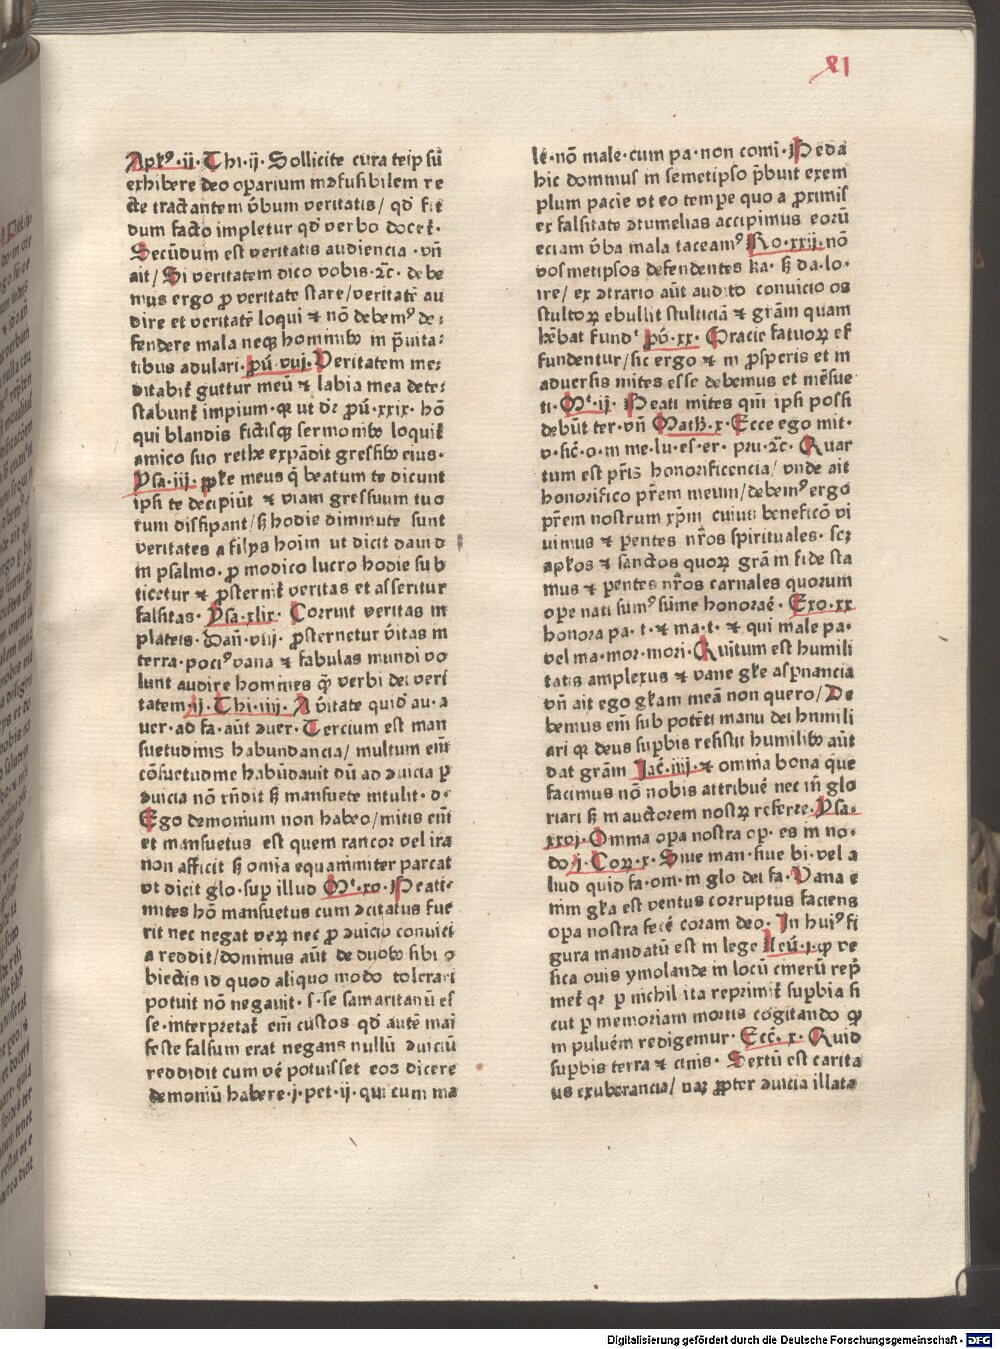 ꝗ1
Apl̃ꝰ·ij·Thi·ij·Sollicite cura teip̃ sũ
exhibere deo oꝑarium inɔfusibilem re
cte tractantem v̄bum veritatis/ qđ tũc
dum facto impletur qđ verbo docet̃·
Secũdum est veritatis audiencia ·vñ
ait/ Si veritatem dico vobis·⁊c· debe
mus ergo ꝓ veritate stare/veritatẽ au
dire et veritatẽ loqui ⁊ nõ debemꝰ de⸗
fendere mala neqꝫ hominibꝫ in p̃uita⸗
tibus adulari·ꝓũ·viij·Veritatem me⸗
ditabit̃ guttur meũ ⁊ labia mea dete⸗
stabunt̃ impium·qꝛ ut dr̃ ꝓũ·xxix·hõ
qui blandis fictisqꝫ sermonibꝫ loquit̃
amico suo rethe expãdit gressibꝫ eius·
Ysa·iij·pp̃le meus q̃ beatum te dicunt
ipsi te decipiũt ⁊ viam gressuum tuo
rum dissipant/sꝫ hodie diminute sunt
veritates a filijs hoĩm ut dicit dauid
in psalmo·ꝓ modico lucro hodie sub
ticetur ⁊ ꝓsternit̃ veritas et asseritur
falsitas·Ysa·xlix·Corruit veritas in
plateis·Dañ·viij·ꝓsternetur v̄itas in
terra·pociꝰ vana ⁊ fabulas mundi vo
lunt audire homines q̃ꝫ verbi dei veri
tatem·ij·Thi·iiij·A v̄itate quid̃ au·a
uer·ad fa·aũt ɔuer·Tercium est man
suetudinis habundancia/ multum em̃
cõsuetudine habũdauit dũ ad ɔuicia ꝓ
ɔuicia nõ rñdit sꝫ mansuete intulit·d·
Ego demonium non habeo/mitis em̃
et mansuetus est quem rancor vel ira
non afficit sꝫ om̃ia equanimiter parcat
vt dicit glo·suꝑ illud Mᵗ·xv·Beati⸗
mites hõ mansuetus cum ɔcitatus fue
rit nec negat veꝝ nec ꝓ ɔuicio conuici
a reddit/dominus aũt de duobꝫ sibi o
biectis id quod aliquo modo tolerari
potuit nõ negauit·s·se samaritanũ es
se·interpretat̃ em̃ custos qđ autẽ mãi
feste falsum erat negans nullũ ɔuiciũ
reddidit cum vẽ potuisset eos dicere
demoniũ habere·j·pet·ij·qui cum ma
lẽ·nõ male·cum pa·non comĩ·Beda
hic dominus in semetipso p̃buit exem
plum pacie vt eo tempe quo a ꝓximis
ex falsitate ɔtumelias accipimus eorũ
eciam v̄ba mala taceamꝰ Ro·xxij·nõ
vosmetipsos defendentes ka·sꝫ da·lo·
ire/ ex ɔtrario aũt audito conuicio os
stultoꝝ ebullit stulticiã ⁊ grãm quam
hẽbat fundᵗ ꝓũ·xx·Gracie fatuoꝝ ef
fundentur/sic ergo ⁊ in ꝓsperis et in
aduersis mites esse debemus et mẽsue
ti·Mᵗ·ij·Beati mites qm̃ ipsi possi
debũt ter·vñ Math̃·x·Ecce ego mit·
v·sic̃·o·in me·lu·es·er·pru·⁊c·Quar
tum est pr̃is honorificencia/ vnde ait
honorifico pr̃em meum/debemꝰ ergo
pr̃em nostrum xp̃m cuius beneficõ vi
uimus ⁊ ꝑentes nr̃os spirituales·scꝫ
apl̃os ⁊ sanctos quoꝝ grã in fide sta
mus ⁊ ꝑentes nr̃os carnales quorum
ope nati sumꝰ sũme honoraẽ·Exo·xx
honora pa·t·⁊ ma·t·⁊ qui male pa·
vel ma·mor·mori·Quĩtum est humili
tatis amplexus ⁊ vane gl̃e asꝑnancia
vñ ait ego gl̃iam meã non quero/De
bemus em̃ sub potẽti manu dei humili
ari qꝛ deus suꝑbis resistit humilibꝫ aũt
dat grãm Jac̃·iiij·⁊ omnia bona que
facimus nõ nobis attribuẽ nec in glo
riari sꝫ in auctorem nosꝝ referre·Ysa·
xxvj·Omnia opa nostra op·es in no·
do·j·Coꝝ·x·Siue man·siue bi·vel a
liud quid fa·om·in glo dei fa·Vana e
nim gl̃ia est ventus corruptus faciens
opa nostra fetẽ coram deo·In huiꝰ fi
gura mandatũ est in lege Leũ·j·qꝙ ve
sica ouis ymolande in locũ cinerũ rep̃
met̃ qꝛ ꝑ nichil ita reprimit̃ suꝑbia si
cut ꝑ memoriam mortis cogitando qꝙ
in puluẽm redigemur·Ecc̃·x·Quid
suꝑbis terra ⁊ cinis·Sextũ est carita
us exuberancia/ naꝫ ꝓpter ɔuicia illata
Digitalisierung gefördert durch die Deutsche Forschungsgemeinschaft · DFG